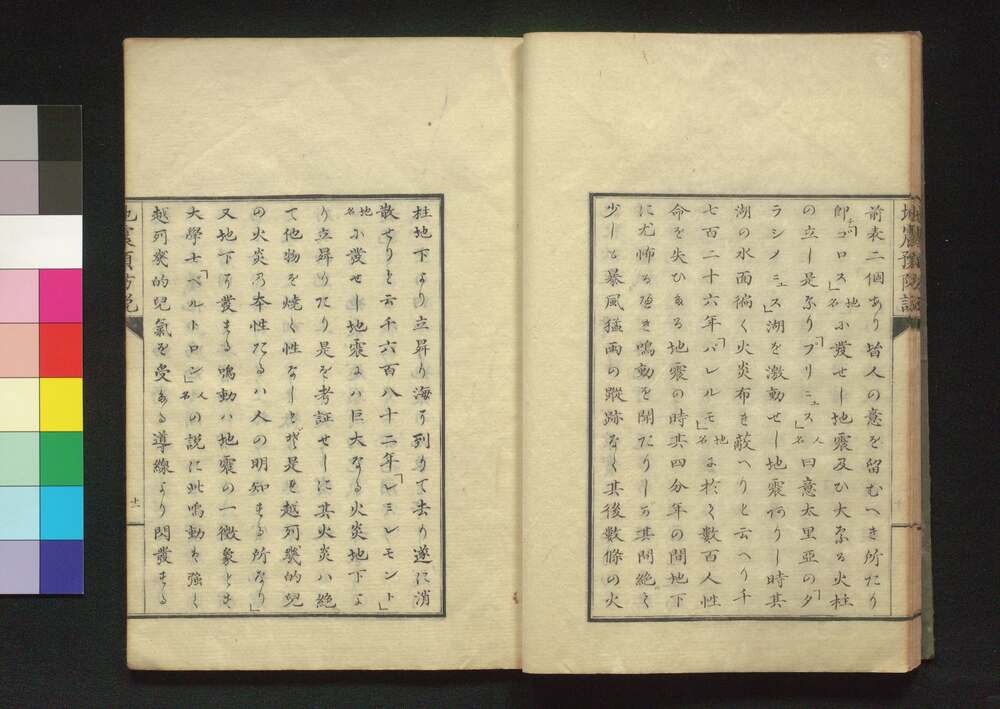 地震預防説
前表二個あり皆人の意を留むへき所たり
即「コロス」地名に発せし地震及ひ大なる火柱
の立し是なり「プリニュス」人名曰意太里亜の「タ
ラシノェス」湖を激動せし地震阿りし時其
湖の水面徧く火炎布き蔽へりと云へり千
七百二十六年「パレルモ」地名に於く数百人性
命を失ひたる地震の時其四分年の間地下
に尤怖るべき鳴動を聞たりしが其間絶く
少しも暴風猛雨の蹤跡なく其後數條の火
柱地下より立昇り海に到りて去り遂に消
散せりと云千六百八十二年「レミレモント」
地名に發せし地震には巨大なる火炎地下よ
り立昇りたり是を考証せしに其火炎ハ絶
て他物を焼く性なしとぞ是を越列幾的兒
の火炎の本性たるハ人の明知する所なり」
又地下に發する鳴動ハ地震の一徴象とす
大學士「ベルトロン」人名の説に此鳴動を強く
越列幾的兒氣を受たる導線より閃發する
地震預防説
十一